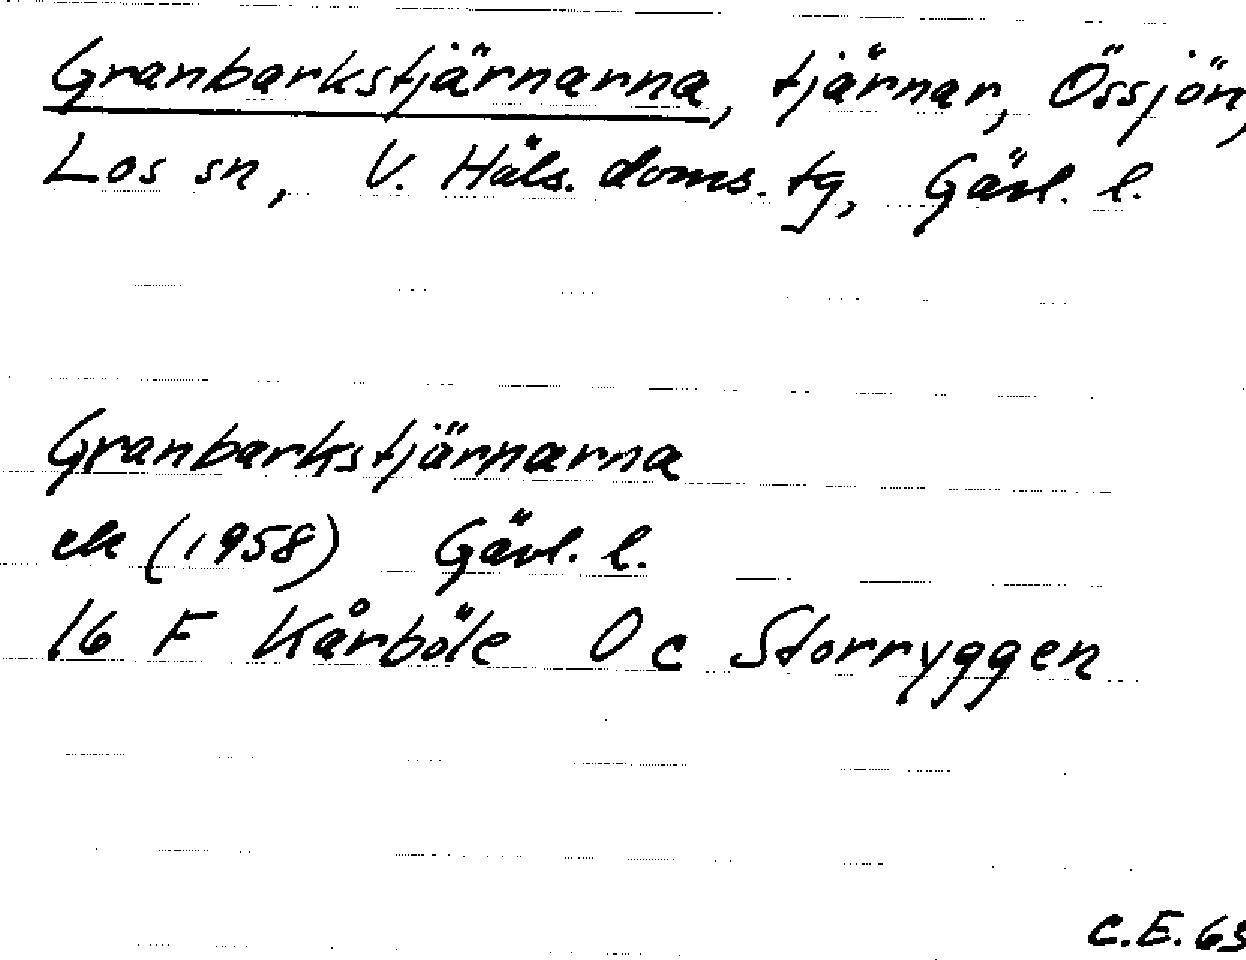 Granbarkstjärnarna, tjärnar, Össjön,
Los sn, V. Häls. doms. tg, Gävl. l.
Granbarkstjärnarna
ek (1958) Gävl. l.
16 F Kårböle 0 c Storryggen
C.E. 63